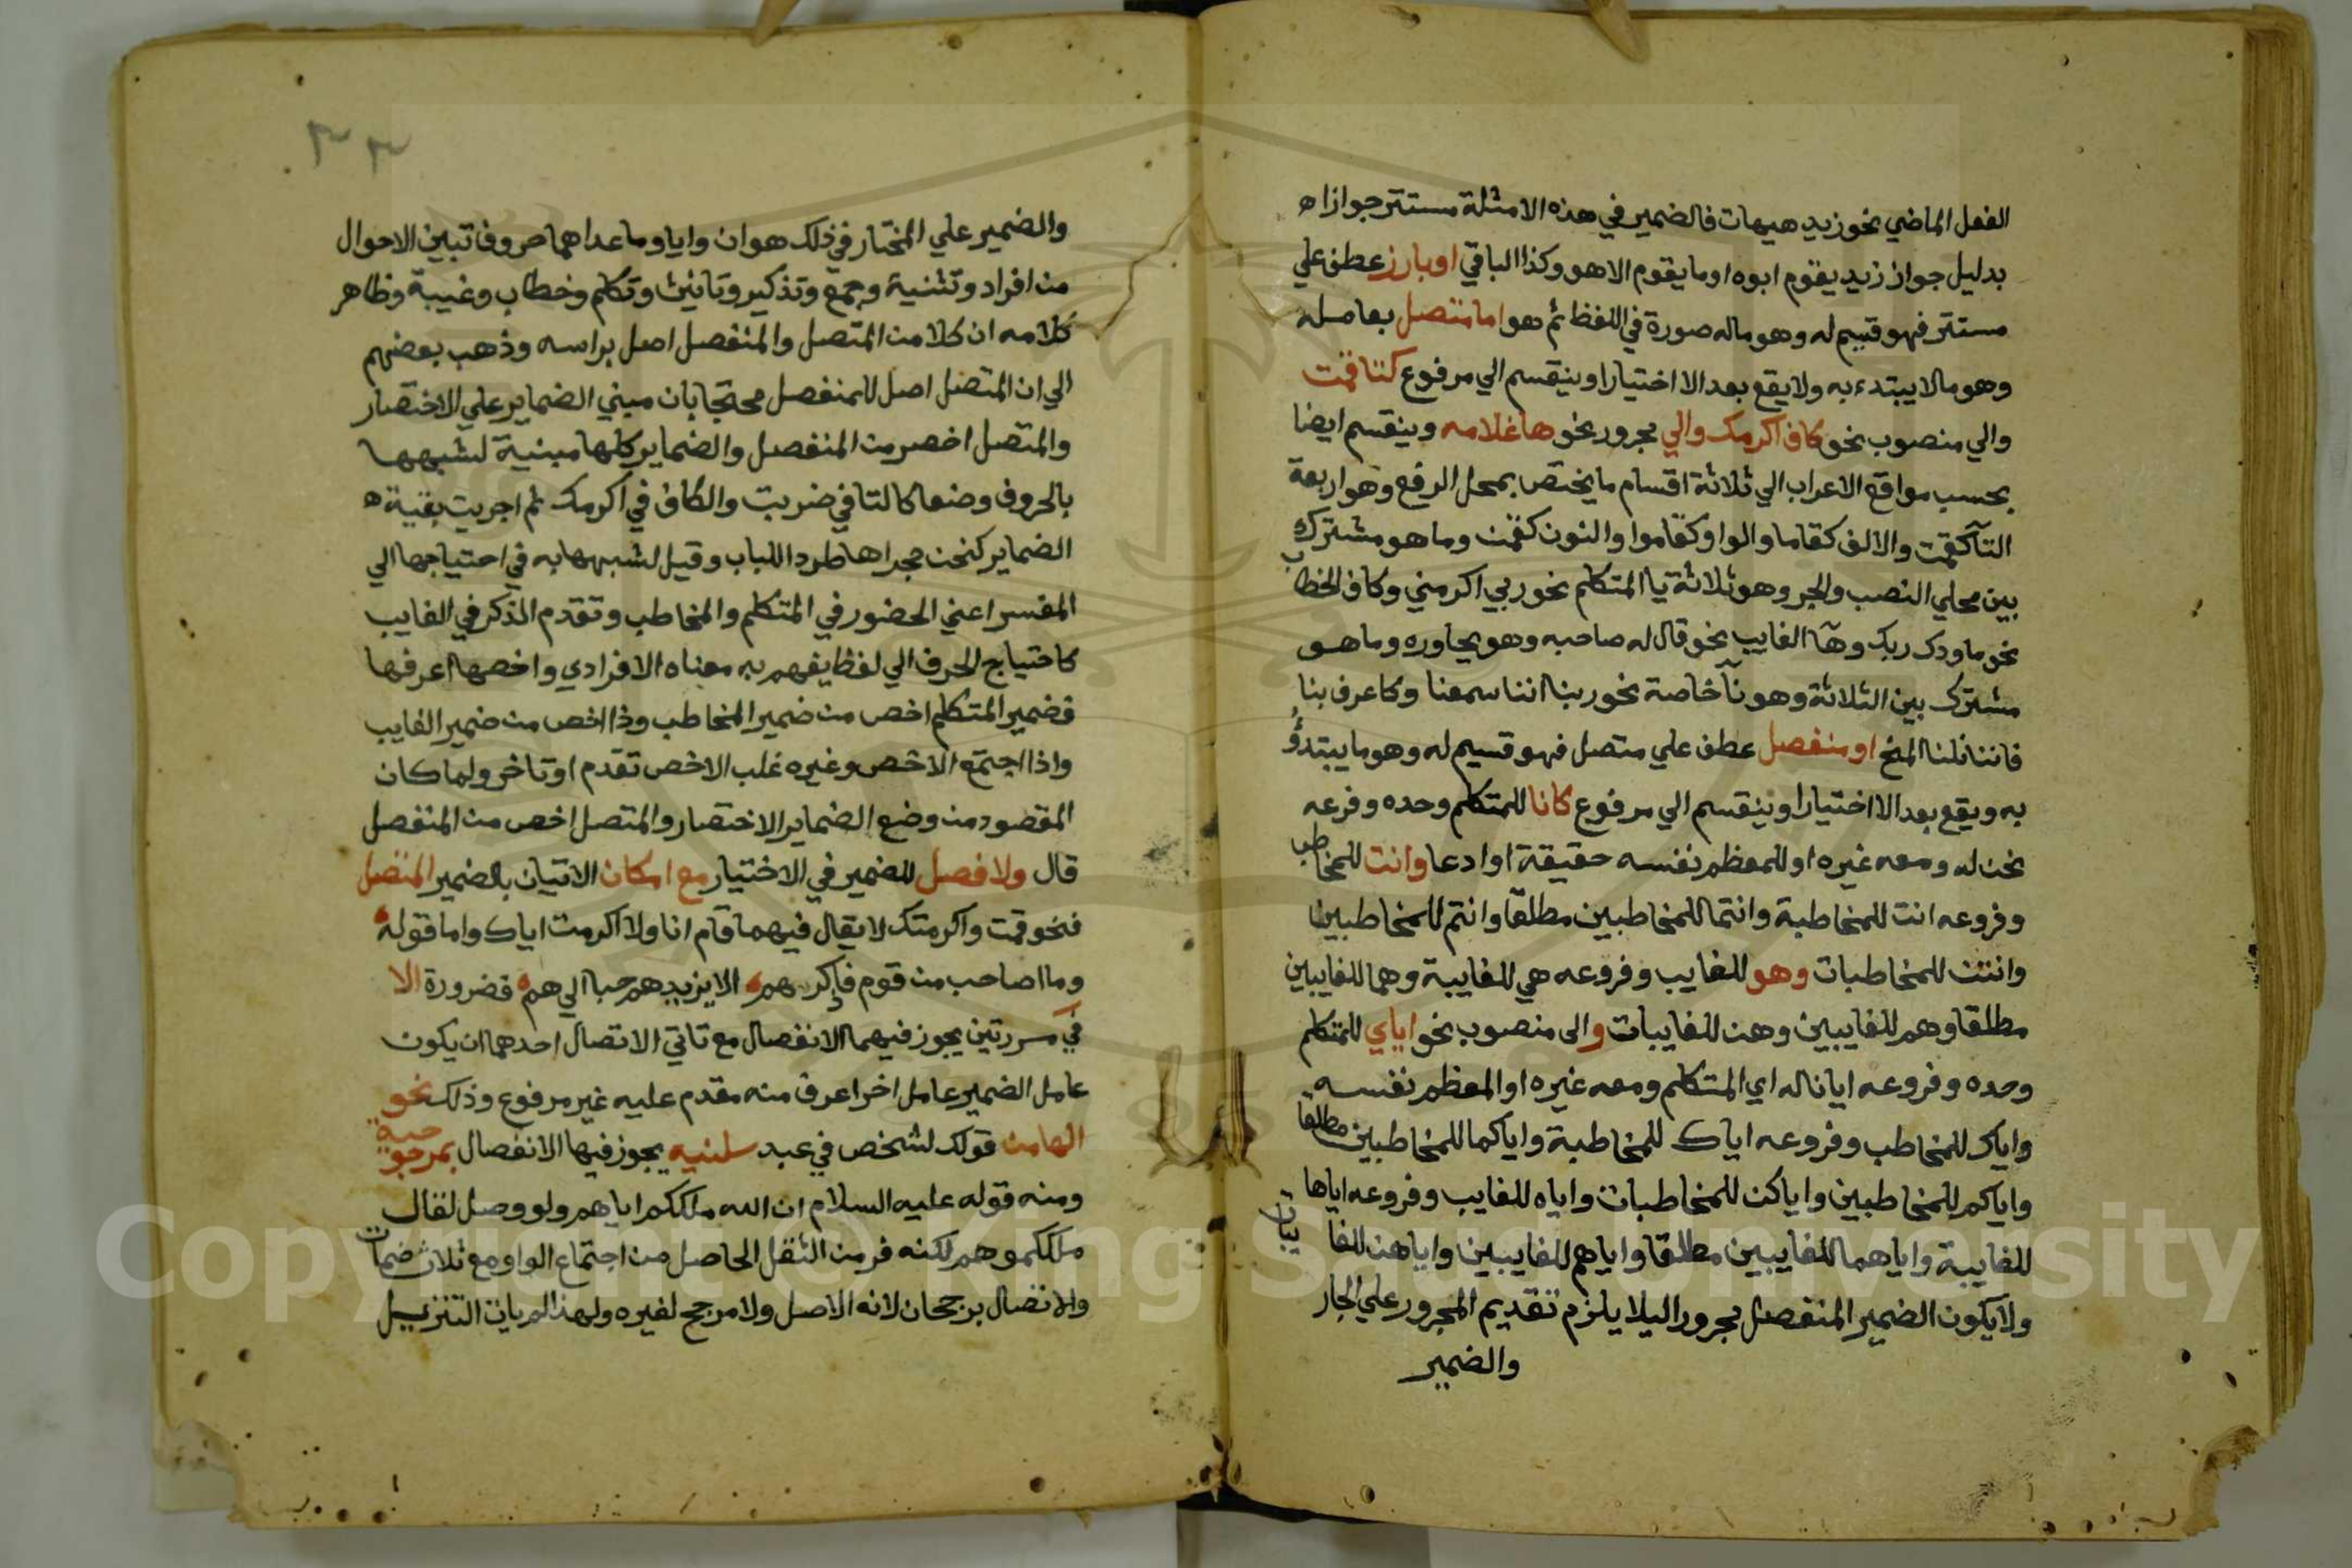 الفعل الماضي نحو زيد هيهات فالضمير في هذه الامثلة مستتر جوازا ه
بدليل جواز زيد يقوم ابوه او ما يقوم الا هو وكذا الباقي او بارز عطف علي
مستتر فهو قسيم له وهو ماله صورة في اللفظ ثم هو اما متصل بعامله
وهو مالا يبتدء به ولا يقع بعد الا اختيارا وينقسم الي مرفوع كتا قمت
والي منصوب نحو كاف اكرمك والي مجرور نحو ها غلامه وينقسم ايضا
بحسب مواقع الاعراب الي ثلاثة اقسام ما يختص بمحل الرفع وهو اربعة
التآ كقمت والالف كقاما والواو كقاموا والنون كقمن وما هو مشترك
بين محلي النصب والجر وهو ثلاثة يا المتكلم نحو ربي اكرمني وكاف الخطاب
نحو ما ودك ربك وهآ الغايب نحو قال له صاحبه وهو يحاوره وما هو
مشترك بين الثلاثة وهو نآ خاصة نحو ربنا اننا سمعنا وكاعرف بنا
فاننا نلنا المنح او منفصل عطف علي متصل فهو قسيم له وهو ما يبتدؤ
به ويقع بعد الا اختيارا وينقسم الي مرفوع كانا للمتكلم وحده وفرعه
نحن له ومعه غيره او للمعظم نفسه حقيقة او ادعا وانت للمخاطب
وفروعه انت للمخاطبة وانتما للمخاطبين مطلقا وانتم للمخاطبين
وانتن للمخاطبات وهو للغايب وفروعه هي للغايبة وهما للغايبين
مطلقا وهم للغايبين وهن للغايبات والى منصوب نحو اياي للمتكلم
وحده وفروعه ايانا له اي المتكلم ومعه غيره او المعظم نفسه
واياك للمخاطب وفروعه اياك للمخاطبة واياكما للمخاطبين مطلقا
واياكم للمخاطبين واياكن للمخاطبات واياه للغايب وفروعه اياها
للغايبة واياهما للغايبين مطلقا واياهم للغايبين واياهن للغايبات
ولا يكون الضمير المنفصل مجرورا ليلا يلزم تقديم المجرور علي الجار
والضمير
٣٣
والضمير علي المختار في ذلك هو ان وايا وما عداهما حروفا تبين الاحوال
من افراد وتثنية وجمع وتذكير وتانيث وتكلم وخطاب وغيبة وظاهر
كلامه ان كلا من المتصل والمنفصل اصل براسه وذهب بعضهم
الي ان المتصل اصل للمنفصل محتجا بان مبني الضماير علي الاختصار
والمتصل اخصر من المنفصل والضماير كلها مبنية لشبهها
بالحروف وضعا كالتا في ضربت والكاف في اكرمك ثم اجريت بقية ه
الضماير كنحن مجراها طردا للباب وقيل لشبهها به في احتياجها الي
المفسر اعني الحضور في المتكلم والمخاطب وتقدم الذكر في الغايب
كاحتياج الحرف الي لفظ يفهم به معناه الافرادي واخصها اعرفها
فضمير المتكلم اخص من ضمير المخاطب وذا اخص من ضمير الغايب
واذا اجتمع الاخص وغيره غلب الاخص تقدم او تاخر ولما كان
المقصود من وضع الضماير الاختصار والمتصل اخص من المنفصل
قال ولا فصل للضمير في الاختيار مع امكان الاتيان بالضمير المتصل
فنحو قمت واكرمتك لا يقال فيهما قام انا ولا اكرمت اياك واما قوله
وما اصاحب من قوم فاذكرهم الا يزيدهم حبا الي هم فضرورة الا
في صورتين يجوز فيهما الانفصال مع تاتي الاتصال احدهما ان يكون
عامل الضمير عامل اخر اعرف منه مقدم عليه غير مرفوع وذلك نحو
الها من قولك لشخص في عبد سلنيه يجوز فيها الانفصال بمرجوحية
ومنه قوله عليه السلام ان الله ملككم اياهم ولو وصل لقال
ملككموهم لكنه فر من الثقل الحاصل من اجتماع الواو مع ثلاث ضمات
والاتصال برجحان لانه الاصل ولا مرجح لغيره ولهذا لم يات التنزيل
Copyright © King Saud University